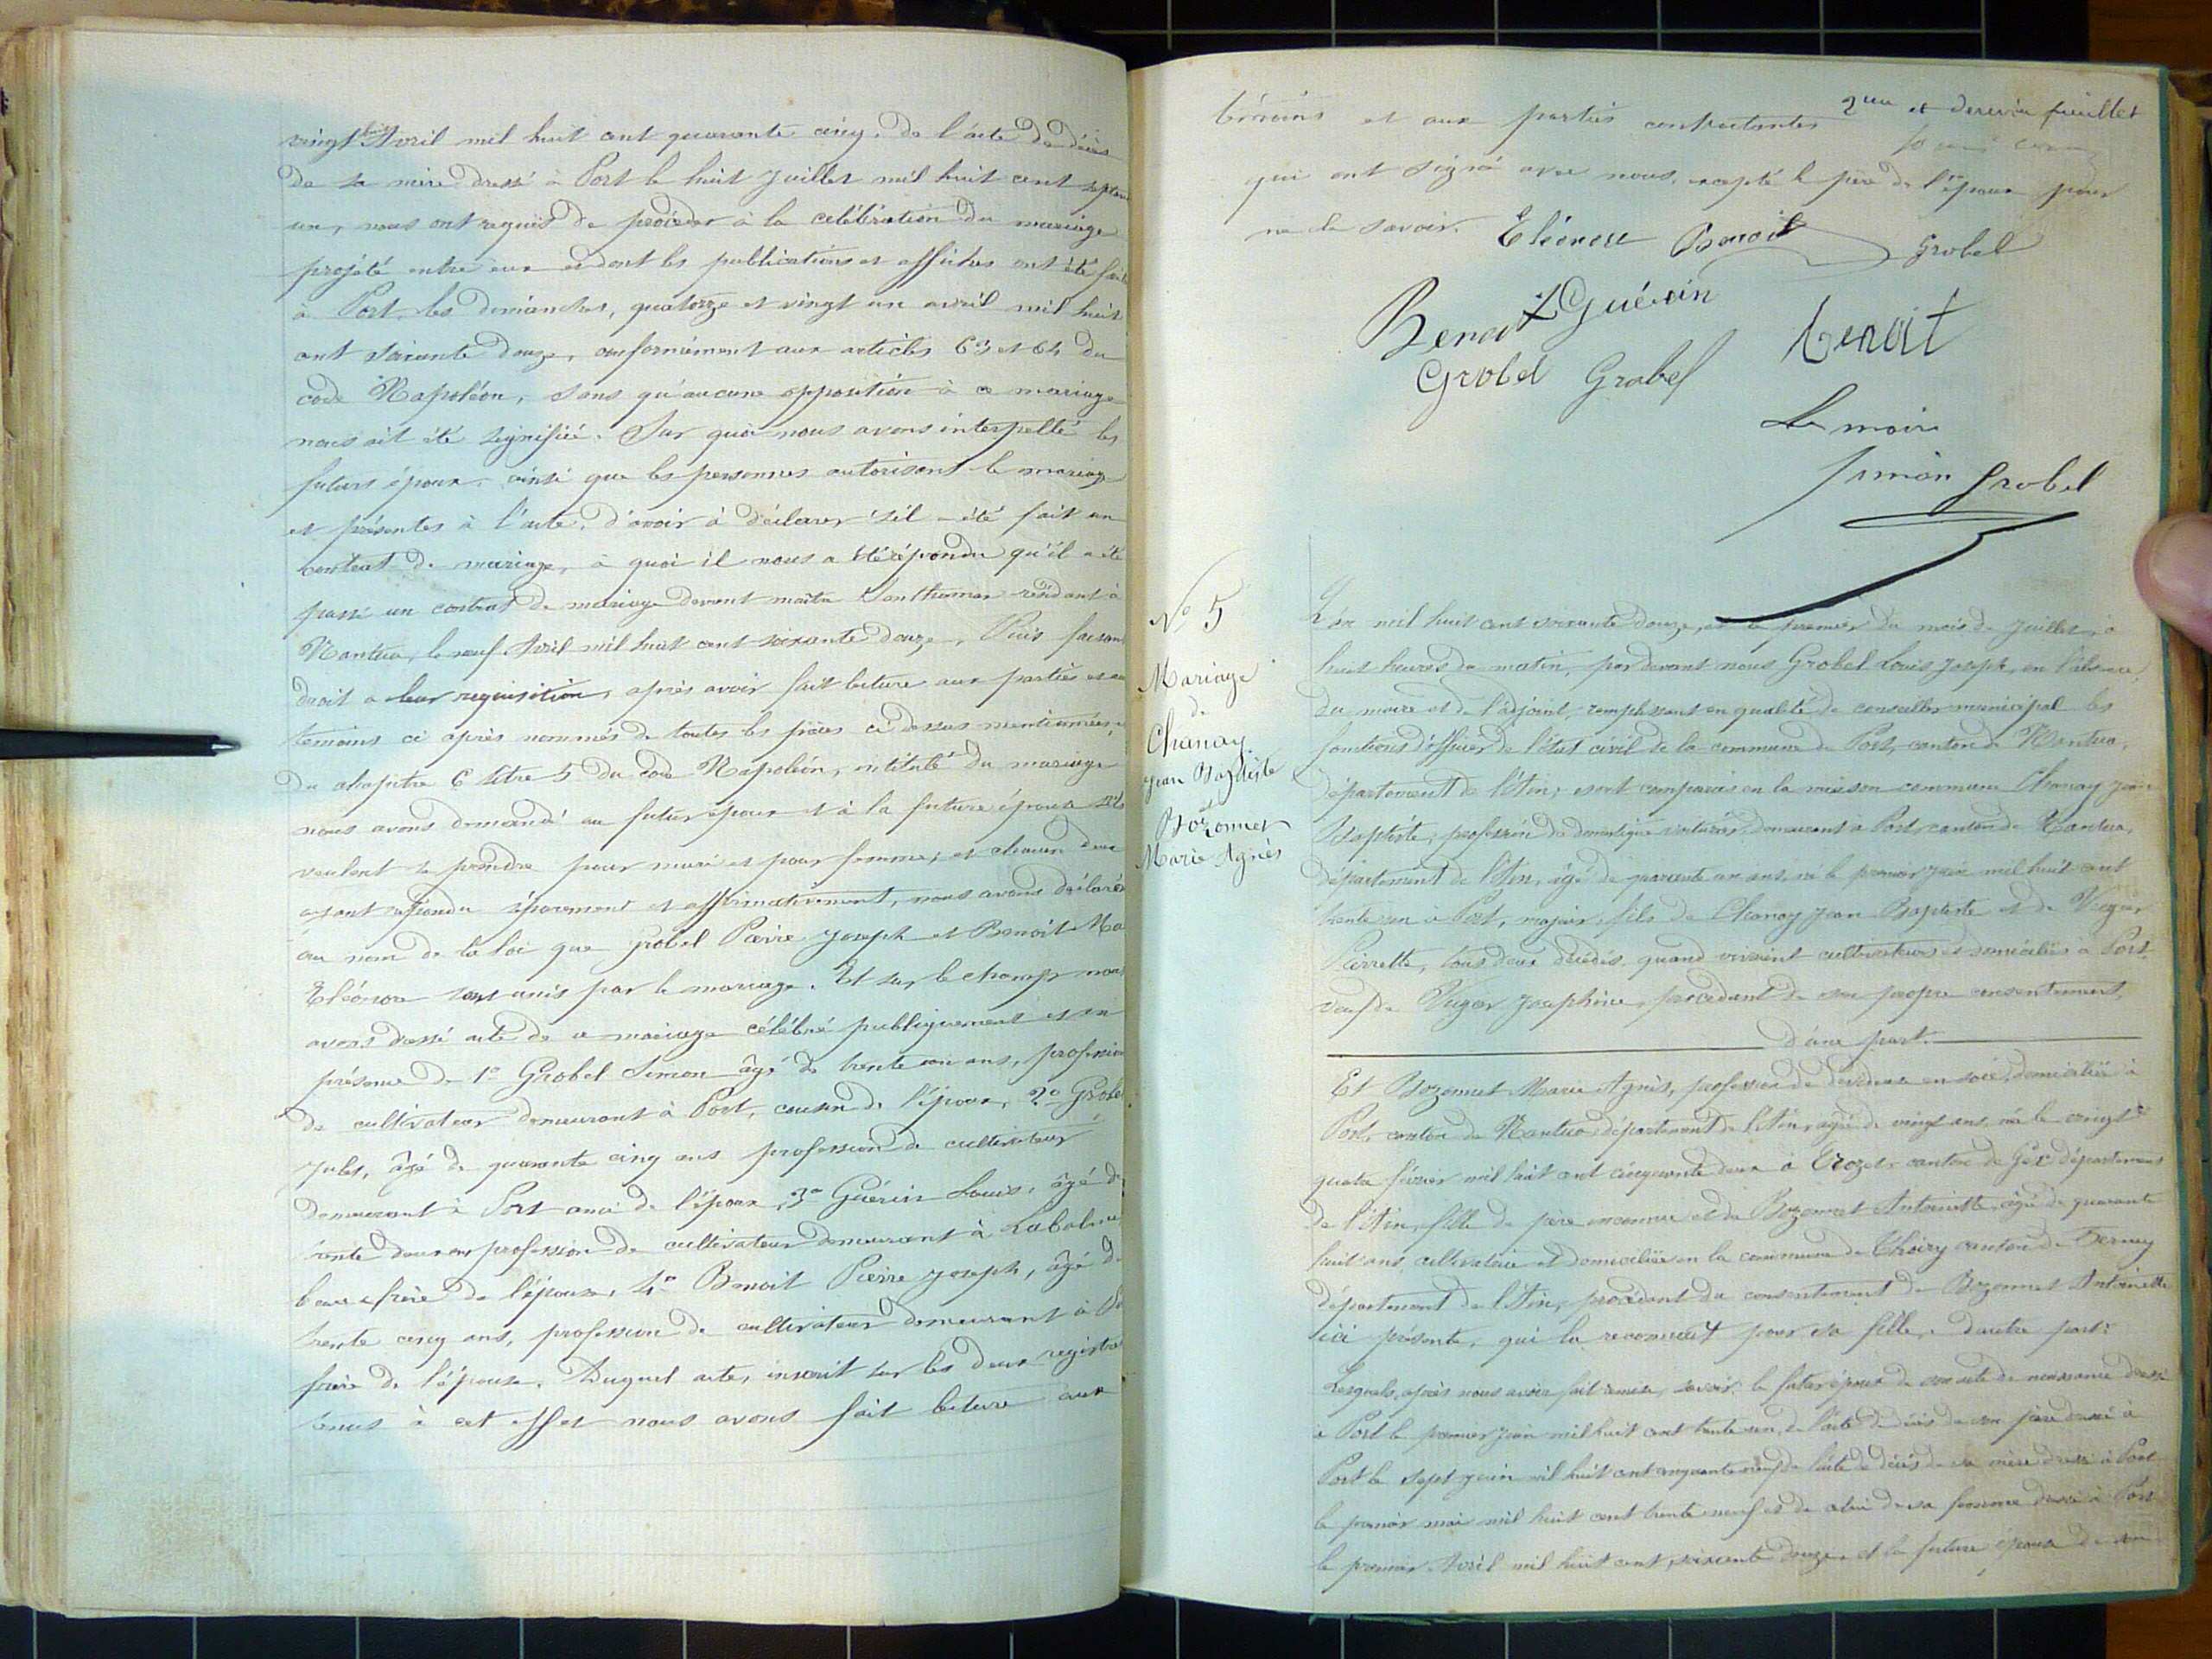 vingt huit Avril mil huit cent quarante cinq. de l'acte de décès
de sa mère dressé à Port le huit Juillet mil huit cent septante
un, nous ont requis de procéder à la célébration du mariage
projeté entre eux et dont les publications et affiches ont été faites
à Port, les dimanches, quatorze et vingt un avril mil huit
cent soixante douze, conformément aux articles 63 et 64 du
code Napoléon, sans qu'aucune opposition à ce mariage
nous ait été signifiée. Sur quoi nous avons interpellé les
futurs époux, ainsi que les personnes autorisant le mariage
et présentes à l'acte, d'avoir à déclarer s'il a été fait un
contrat de mariage, à quoi il nous a été répondu qu'il a été
passé un contrat de mariage devant maître résidant à
Nantua, le neuf Avril mil huit cent soixante douze, Puis faisant
droit a leur requisition, après avoir fait lecture aux parties et aux
temoins ci après nommés de toutes les pièces ci dessus mentionnées,
du chapitre 6 titre 5 du code Napoléon, intitulé du mariage
nous avons demandé au futur époux et à la future épouse s'ils
veulent se prendre pour mari et pour femme; et chacun d'eux
ayant répondu séparément et affirmativement, nous avons déclaré
au nom de la loi que Grobel Pierre Joseph et Benoit Ma
Eléonore sont unis par le mariage. Et sur le champ nous
avons dressé acte de ce mariage célébré publiquement et en
présence de 1° Grobel Simon âgé de trente un ans, profession
de cultivateur demeurant à Port, cousin de l'époux, 2° Grobel
Jules, âgé de quarante cinq ans profession de cultivateur
demeurant à Port ami de l'époux, 3° Guérin Louis, âgé de
trente deux ans profession de cultivateur demeurant à Labalme
beau-frère de l'épouse, 4° Benoit Pierre Joseph, âgé de
trente cinq ans, profession de cultivateur demeurant à Po
frère de l'épouse. Duquel acte, inscrit sur les deux registres
tenus à cet effet nous avons fait lecture aux
2me et dernier feuillet
témoins et aux parties contractantes
qui ont signé avec nous, excepté le père de l'époux pour
ne le savoir. Eléonore Benoit Grobel
Benoit Guérin Benoit
Grobel Grobel
Le maire
Simon Grobel
N° 5
Mariage
de
Chanay
Jean Baptiste
et
Bozonnet
Marie Agnès
L'an mil huit cent soixante douze, et le premier du mois de Juillet, à
huit heures du matin, par devant nous Grobel Louis Joseph, en l'absence
du maire et de l'adjoint, remplissant en qualité de conseiller municipal les
fonctions d'officier de l'état civil de la commune de Port, canton de Nantua,
département de l'Ain; sont comparus en la maison commune Chanay Jean
Baptiste, profession de domestique voiturier, demeurant à Port, canton de Nantua,
département de l'Ain, âgé de quarante un ans, né le premier Juin mil huit cent
trente un à Port, majeur, fils de Chanay Jean Baptiste et de
Pierrette, tous deux décédés quand vivaient cultivateurs et domiciliés à Port,
veuf de Josephine, procédant de son propre consentement,
d'une part.
Et Bozonnet Marie Agnès, profession de dévideuse en soie, domiciliée à
Port, canton de Nantua département de l'Ain, agée de vingt ans, née le vingt
quatre février mil huit cent cinquante deux à Crozet, canton de Gex département
de l'Ain, fille de père inconnu et de Bozonnet Antoinette, âgée de quarante
huit ans cultivatrice et domiciliée en la commune de Thoiry canton de Ferney
département de l'Ain, procédant du consentement de Bozonnet Antoinette
ici présente, qui la reconnait pour sa fille, d'autre part:
Lesquels, après nous avoir fait remise, savoir: le futur époux de son acte de naissance dressé
à Port le premier Juin mil huit cent trente un, de l'acte de décès de son père dressé à
Port le sept Juin mil huit cent cinquante neuf, de l'acte de décès de sa mère dressé à Port
le premier mai mil huit cent trente neuf et de celui de sa femme dressé à Port
le premier Avril mil huit cent soixante douze, et la future épouse de son